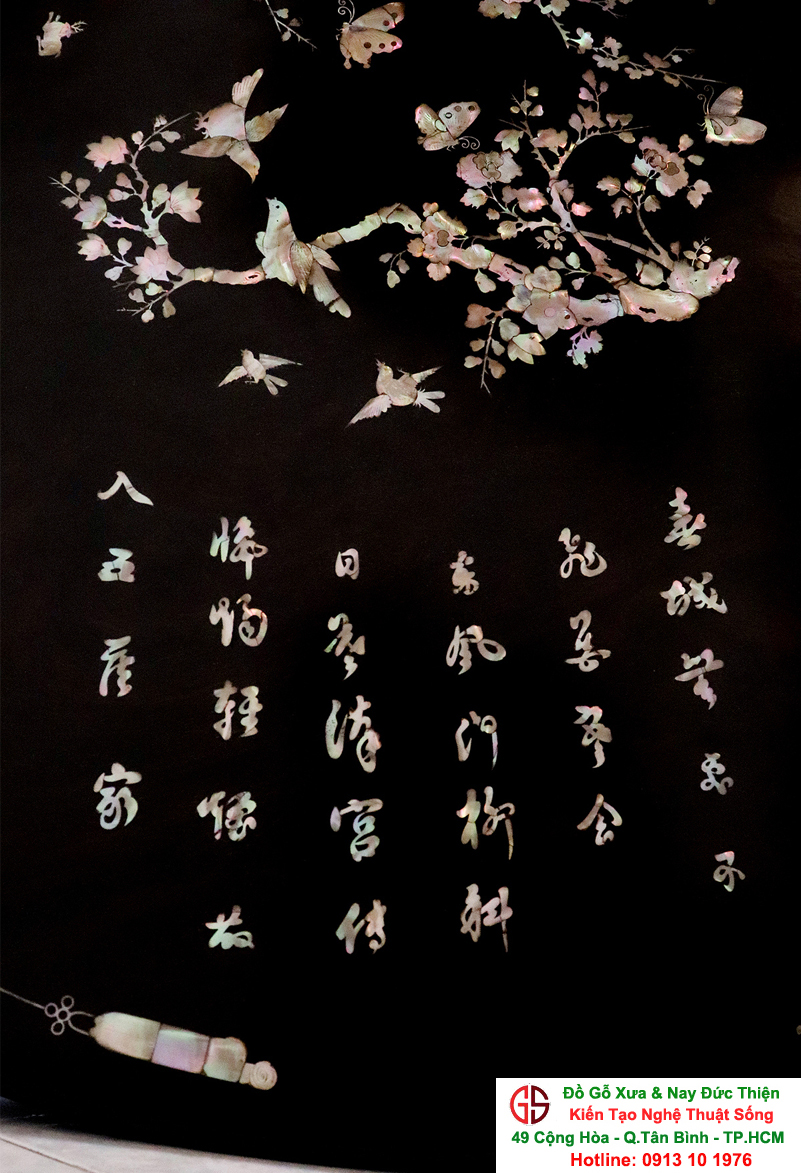 春城無處不
飛花寒食
東風御柳斜
日暮漢宮傳
蠟燭輕煙散
入五侯家
Đồ Gỗ Xưa & Nay Đức Thiện
Kiến Tạo Nghệ Thuật Sống
49 Cộng Hòa - Q.Tân Bình - TP.HCM
Hotline: 0913 10 1976